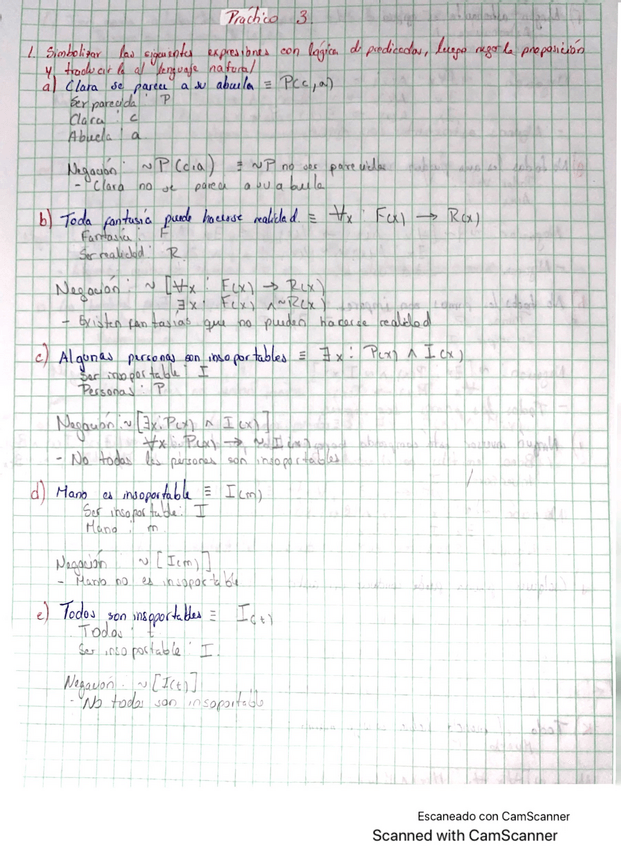 Práctico 3.
1. Simbolizar las siguientes expresiones con lógica de predicados, luego negar la proposición
y traducirla al lenguaje natural
a) Clara se parece a su abuela ≡ P(c,a)
Ser parecida : P
Clara : c
Abuela : a
Negación : ~P(c,a) ≡ ~P no ser parecida
- Clara no se parece a su abuela
b) Toda fantasía puede hacerse realidad ≡ ∀x : F(x) → R(x)
Fantasía : F
Ser realidad : R
Negación : ~ [∀x : F(x) → R(x)
∃x : F(x) ∧ ~R(x)
- Existen fantasías que no pueden hacerse realidad
c) Algunas personas son insoportables ≡ ∃x : P(x) ∧ I(x)
Ser insoportable : I
Personas : P
Negación : ~ [∃x : P(x) ∧ I(x)]
∀x : P(x) → ~ I(x)
- No todas las personas son insoportables
d) Mano es insoportable ≡ I(m)
Ser insoportable : I
Mano : m
Negación : ~ [I(m)]
- Mano no es insoportable
e) Todos son insoportables ≡ I(t)
Todos : t
Ser insoportable : I.
Negación : ~ [I(t)]
- No todos son insoportable
Escaneado con CamScanner
Scanned with CamScanner